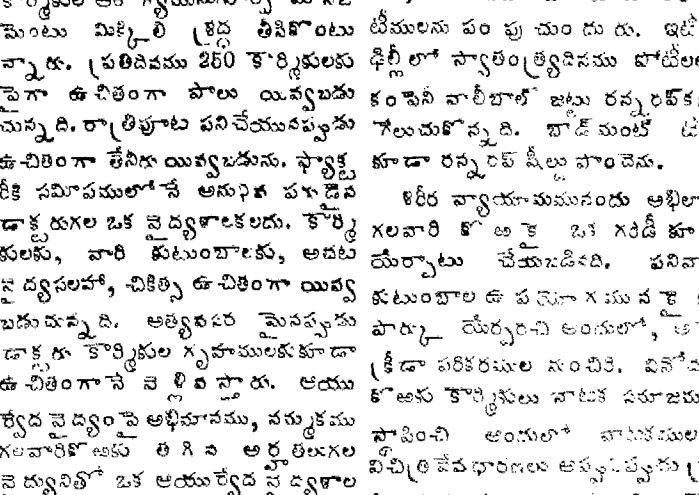 మెంటు మిక్కిలి శ్రద్ధ తీసికొంటు
న్నారు. ప్రతిదినము 250 కార్మికులకు
పైగా ఉచితంగా పాలు యివ్వబడు
చున్నది. రాత్రిపూట పనిచేయునప్పుడు
ఉచితంగా తేనీరు యివ్వబడును. ఫ్యాక్ట
రీకి సమీపములోనే అనుభవ పరుడైన
డాక్టరుగల ఒక వైద్యశాలకలదు. కార్మి
కులకు, వారి కుటుంబాలకు, అచట
వైద్యసలహా, చికిత్స ఉచితంగా యివ్వ
బడుచున్నది. అత్యవసర మైనప్పుడు
డాక్టరు కార్మికుల గృహములకుకూడా
ఉచితంగానే వెళ్లివస్తారు. ఆయు
ర్వేదవైద్యంపై అభిమానము, నమ్మకము
గలవారికొఱకు తగిన అర్హతలుగల
వైద్యునితో ఒక ఆయుర్వేద వైద్యశాల
టీములను పంపుచుందురు. ఇటీ
ఢిల్లీలో స్వాతంత్ర్యదినము పోటీలల
కంపెనీ వాలీబాల్ జట్టు రన్నరప్‌క
గెలుచుకొన్నది. బాడ్‌మింటన్ ట
కూడా రన్నరప్ షీల్డు పొందెను.
శరీర వ్యాయామమునందు అభిలా
గలవారి కొఱకై ఒక గరిడీ కూ
యేర్పాటు చేయబడినది. పనివా
కుటుంబాల ఉపయోగమునకై
పార్కు యేర్పరచి అందులో,
క్రీడా పరికరముల నుంచిరి. వినోద
కొఱకు కార్మికులు నాటక సమాజము
స్థాపించి అందులో నాటకముల
విచిత్రవేషధారణలు అప్పుడప్పుడు